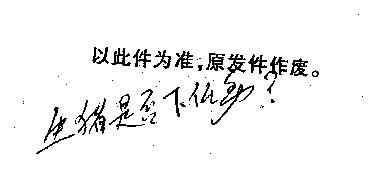 以此件为准，原发件作废。
生猪是否下伍勇？